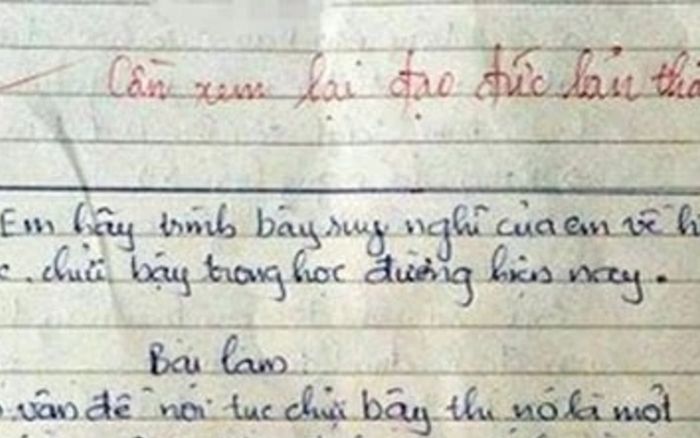 Cần xem lại đạo đức bản thâ
Em hãy trình bày suy nghĩ của em về h
c, chửi bậy trong học đường hiện nay.
Bài làm:
vấn đề nói tục chửi bậy thì nó là một